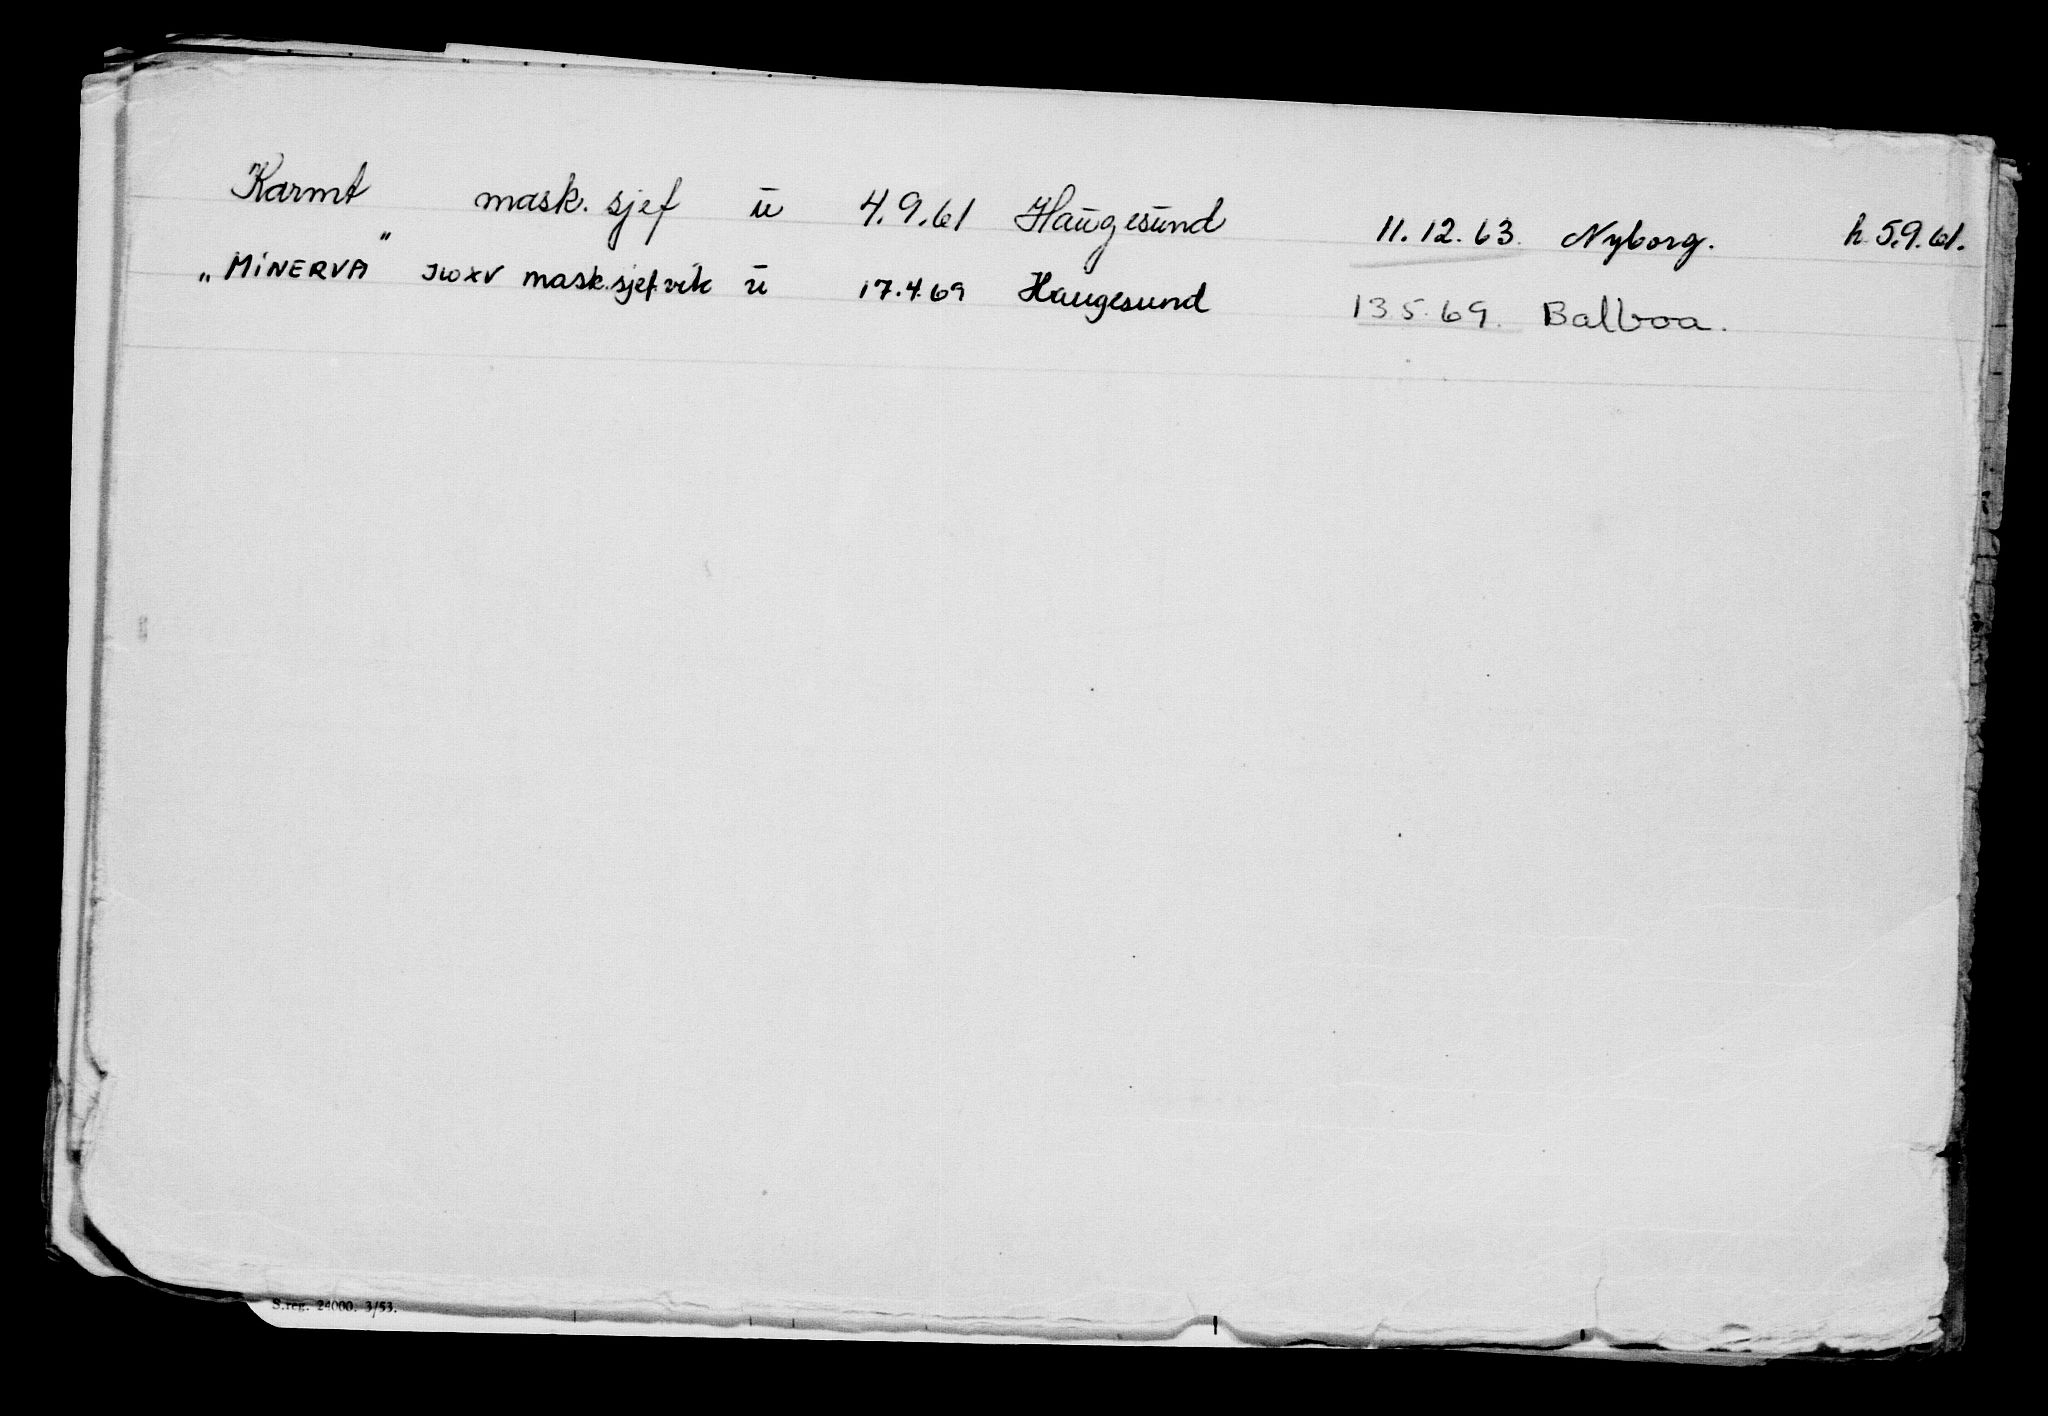 Karmt mask. sjef u 4.9.61 Haugesund 11.12.63. Nyborg. h. 5.9.61.
„MINERVA" JWXV mask.sjef.vik u 17.4.69 Haugesund 13.5.69. Balboa.
S.reg. 24000. 3/53.